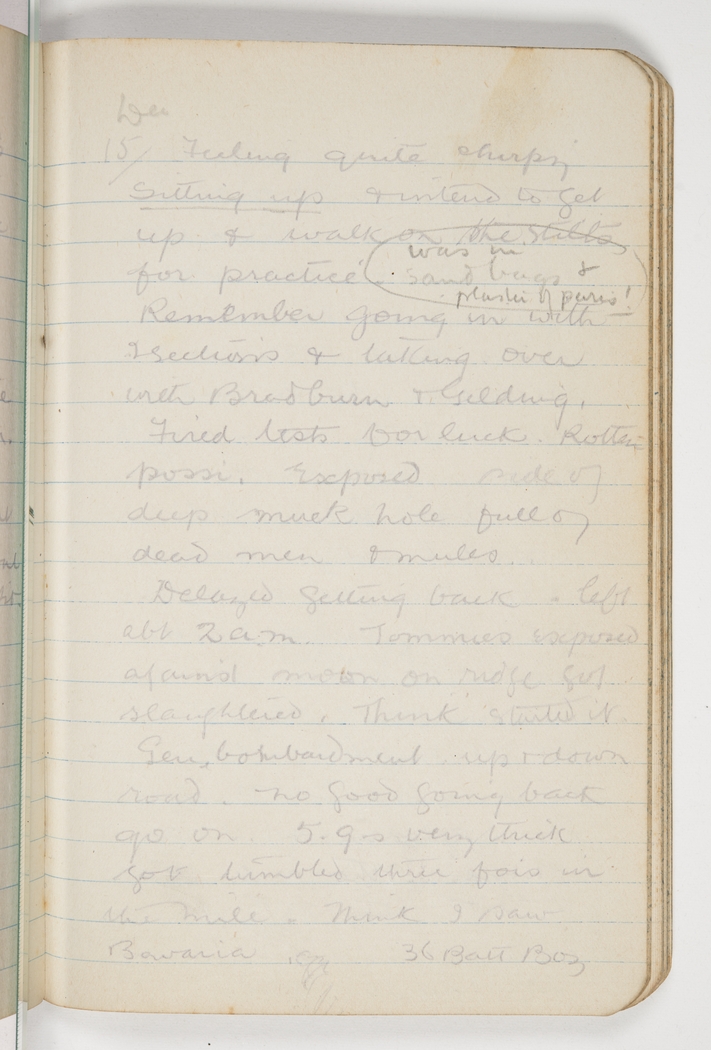 Dec
15/ Feeling quite chirpy
Sitting up & intend to get
up & walk on the stilts
was in
for practice. sand bags &
plaster of paris!
Remember going in with
2 sections & taking over
with Bradburn & Gelding.
Fired tests for luck. Rotten
possi. Exposed side of
deep muck hole full of
dead men & mules.
Delayed getting back - left
abt 2 a.m. Tommies exposed
against moon on ridge got
slaughtered. Think started it.
Gen. bombardment up & down
road. No good going back
go on. 5.9-s very thick
got tumbled three fois in
the mile. Think I saw
Bavaria 36 Batt Boy